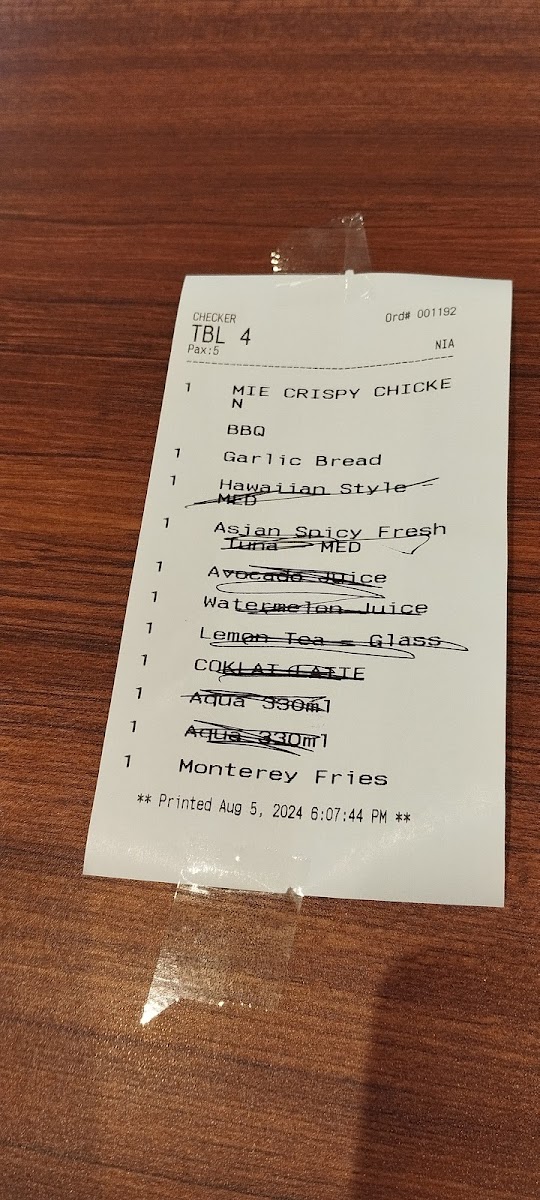 CHECKER Ord# 001192
TBL 4
Pax:5 NIA
1 MIE CRISPY CHICKE
N
BBQ
1 Garlic Bread
1 Hawaiian Style -
MED
1 Asian Spicy Fresh
Tuna - MED
1 Avocado Juice
1 Watermelon Juice
1 Lemon Tea - Glass
1 COKLAT LATTE
1 Aqua 330ml
1 Aqua 330ml
1 Monterey Fries
** Printed Aug 5, 2024 6:07:44 PM **